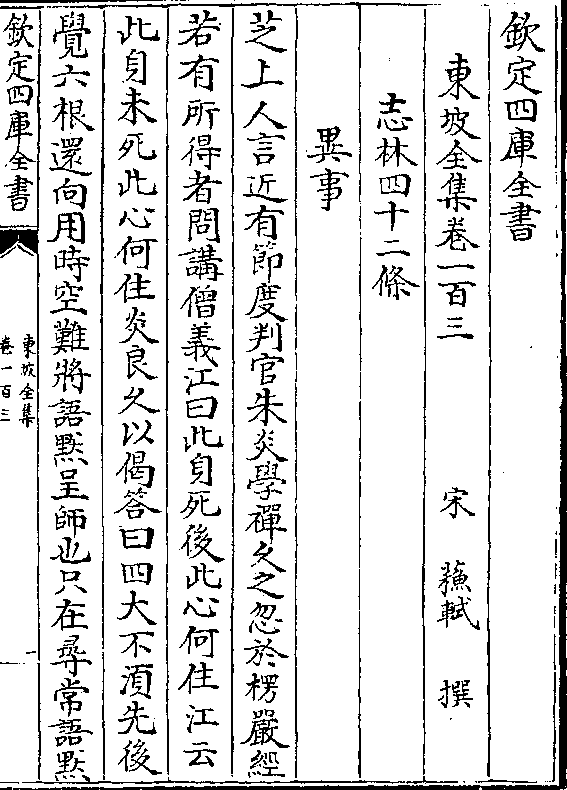 欽定四庫全書
東坡全集卷一百三
宋 蘓軾 撰
志林四十二條
異事
芝上人言近有節度判官朱炎學禪久之忽於楞嚴經
若有所得者問講僧義江曰此身死後此心何住江云
此身未死此心何住炎良久以偈答曰四大不湏先後
覺六根還向用時空難將語黙呈師也只在尋常語黙
欽定四庫全書
東坡全集
卷一百三
一